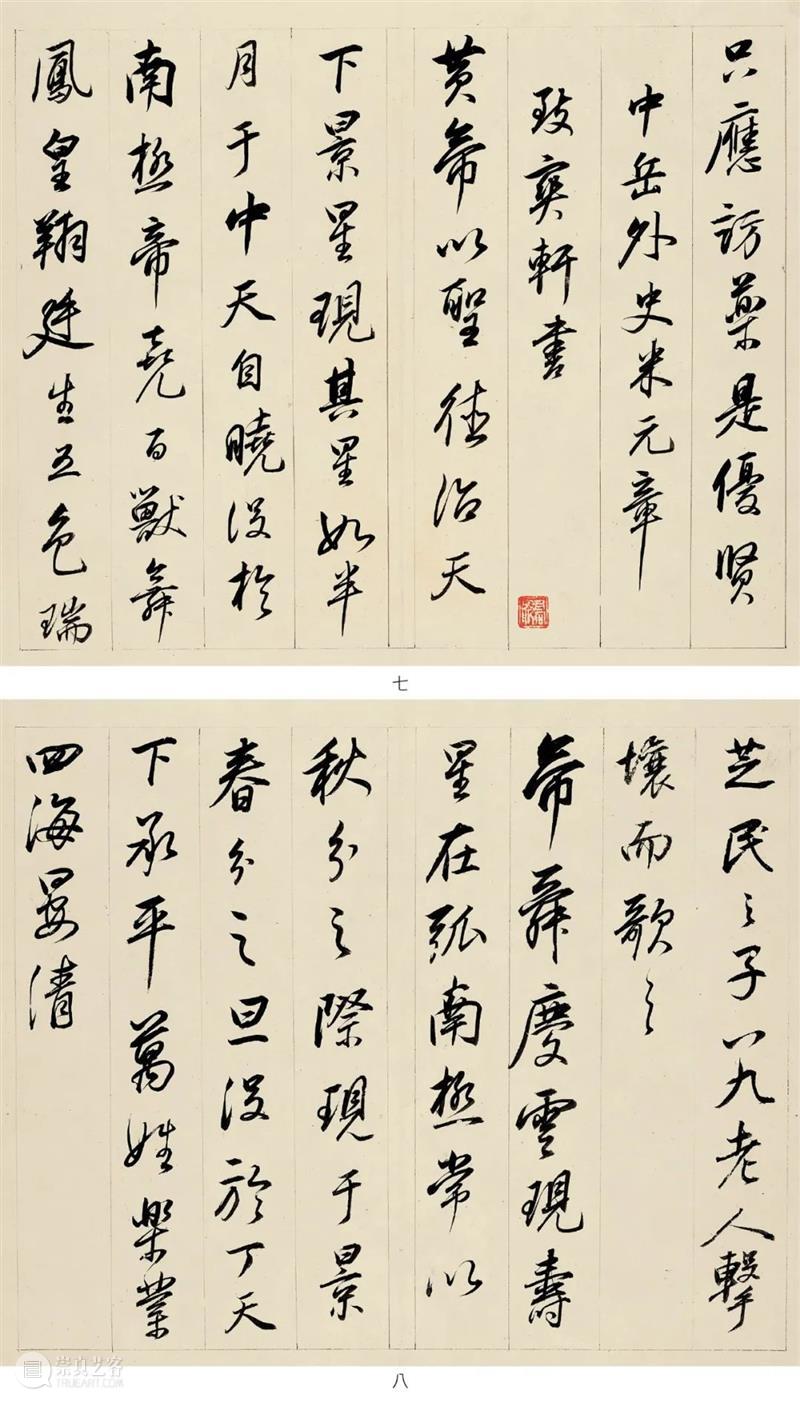 只應訪藥是優賢
中岳外史米元章
致爽軒書
黄帝以聖德治天
下景星現其星如半
月于中天自曉没於
南極帝堯百獸舞
鳳皇翔廷生五色瑞
七
芝民之子八九老人擊
壤而歌之
帝舜慶雲現壽
星在弧南極常以
秋分之際現于景
春分之旦没於丁天
下承平萬姓樂業
四海晏清
崇真艺客
TRUEART.COM
八